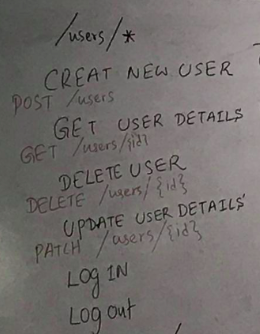 /users/*
CREAT NEW USER
POST /users
GET USER DETAILS
GET /users/{id}
DELETE USER
DELETE /users/{id}
UPDATE USER DETAILS
PATCH /users/{id}
LOG IN
LOG out